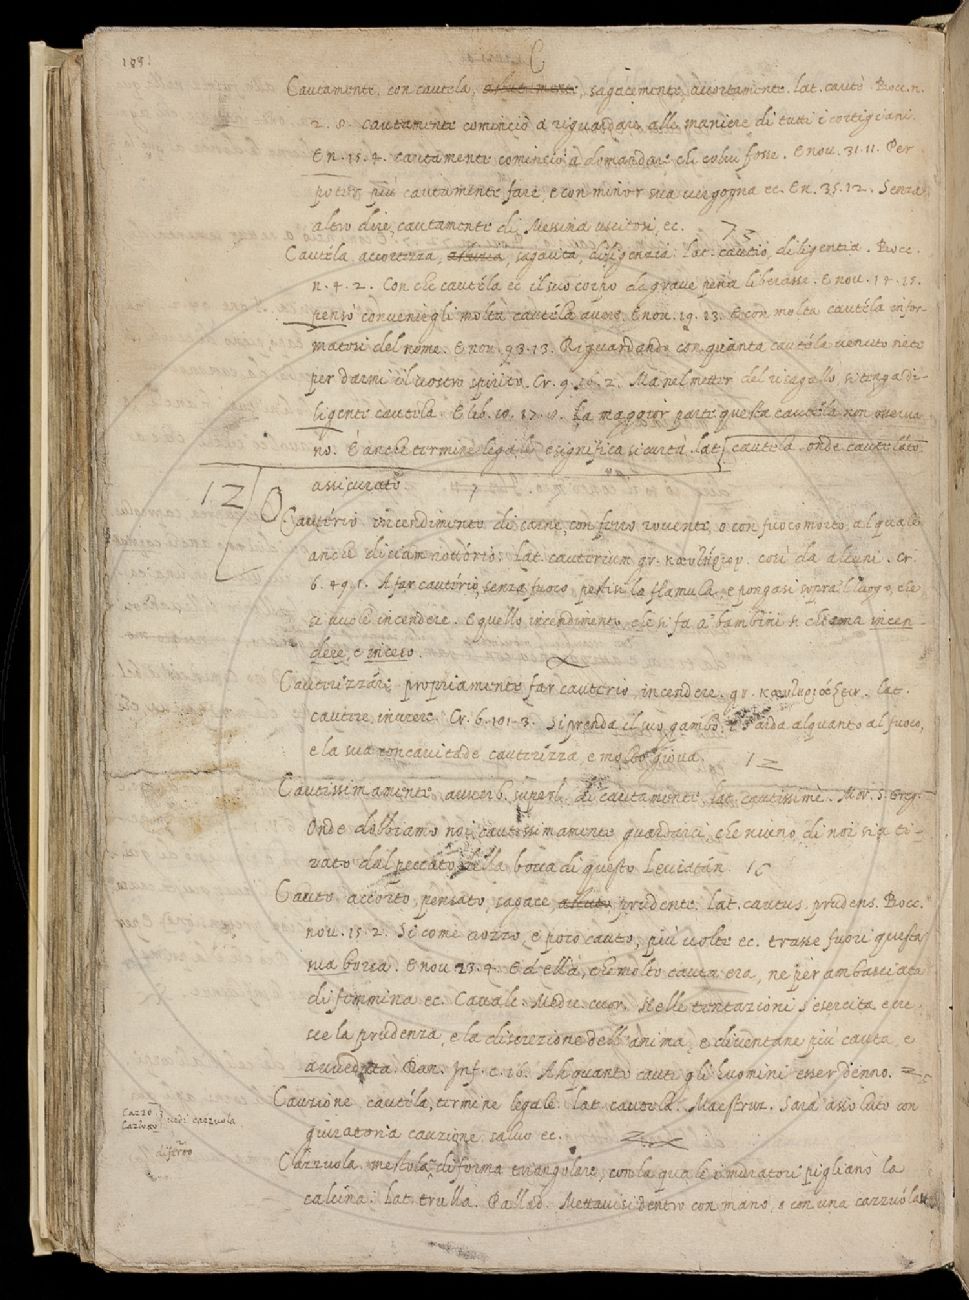 C
Cautamente, con cautela, astutamente, sagacemente, accortamente. lat. cautè. Bocc. n.
2. 8. cautamente cominciò a riguardare alle maniere di tutti i cortigiani.
E n. 15. 4. cautamente cominciò a domandare chi colui fosse. E nou. 31. 11. Per
poter più cautamente fare, e con minor sua uergogna ec. E n. 35. 12. Senza
altro dire, cautamente di Messina uscitosi, ec.
Cautéla accortezza, astuzia, sagacità, diligenzia. lat. cautio, diligentia. Bocc.
n. 4. 2. Con che cautéla ec il suo corpo da graue pena liberasse. E nou. 14. 15.
pensò conueniegli molta cautéla auere. E nou. 19. 13. E con molta cautéla infor-
matosi del nome. E nou. 93. 13. Riguardando con quanta cautéla uenuto se'
per darmi il uostro spirito. Cr. 9. 2. Ma nel metter del risagallo, si tenga di-
ligente cautéla. E lib. 10. 17. La maggior parte questa cautéla non osserua
no. È anche termine legale e significa sicurtà. lat. cautela. onde cautelato
assicurato.
12
Cautério incendimento di carne, con ferro rouente, o con fuoco morto, al quale
anche diciam rottório. lat. cauterium gr. καυτήριον. così da alcuni. Cr.
6. 49. 1. A far cautério, senza fuoco, pestisi la flamula, e pongasi sopra 'l luogo, che
si uuole incendere. E quello incendimento, che si fa a' bambini si chiama incen-
dere, e inceso.
Cauterizzáre propriamente far cauterio, incendere. gr. καυτηριάζειν. lat.
caurire, inurere. Cr. 6. 101. 3. Si prenda il suo gambo, e s'arda alquanto al fuoco,
e la sua concauitade cauterizza, e molto gioua.
Cautissimamente auuerb. superl. di cautamente, lat. cautissimè. Mor. S. Greg.
Onde dobbiamo noi cautissimamente guardarci, che niuno di noi sia ti-
rato dal peccato nella bocca di questo Leuiatán.
Cauto accorto, pensato, sagace, astuto prudente. lat. cautus. prudens. Bocc.
nou. 15. 2. Si come rozzo, e poco cauto, più uolte ec. trasse fuori questa
sua borsa. E nou 23. 9. Ed ella, che molto cauta era, ne per ambasciata
di femmina ec. Caualc. Medic. cuor. Nelle tentazioni s'esercita e cre-
sce la prudenza, e la discrezione dell'anima, e diuentane più cauta, e
auueduta. Dan. Inf. c. 16. Ahi quanto cauti gli huomini esser denno.
Cauzione cautéla, termine legale. lat. cautela. Maestruz. Sarà assoluto con
giuratoria cauzione, saluo ec.
Cazzo } uedi cazzuola
Cazzuola mestola, di forma triangolare, con la quale i muratori pigliano la
calcina. Lat. trulla. Pallad. Mettauisi dentro con mano, o con una cazzuóla